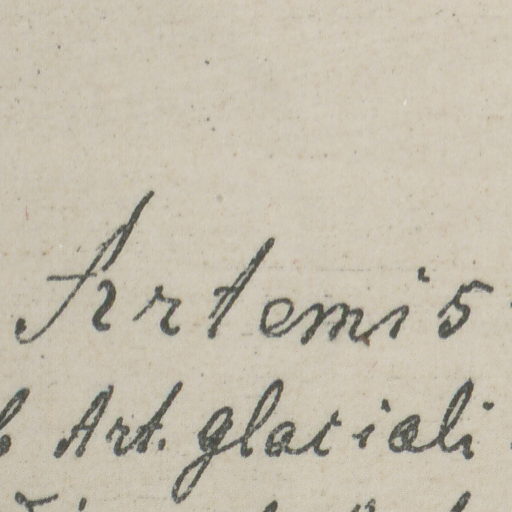 Artemis
Art. glaciali